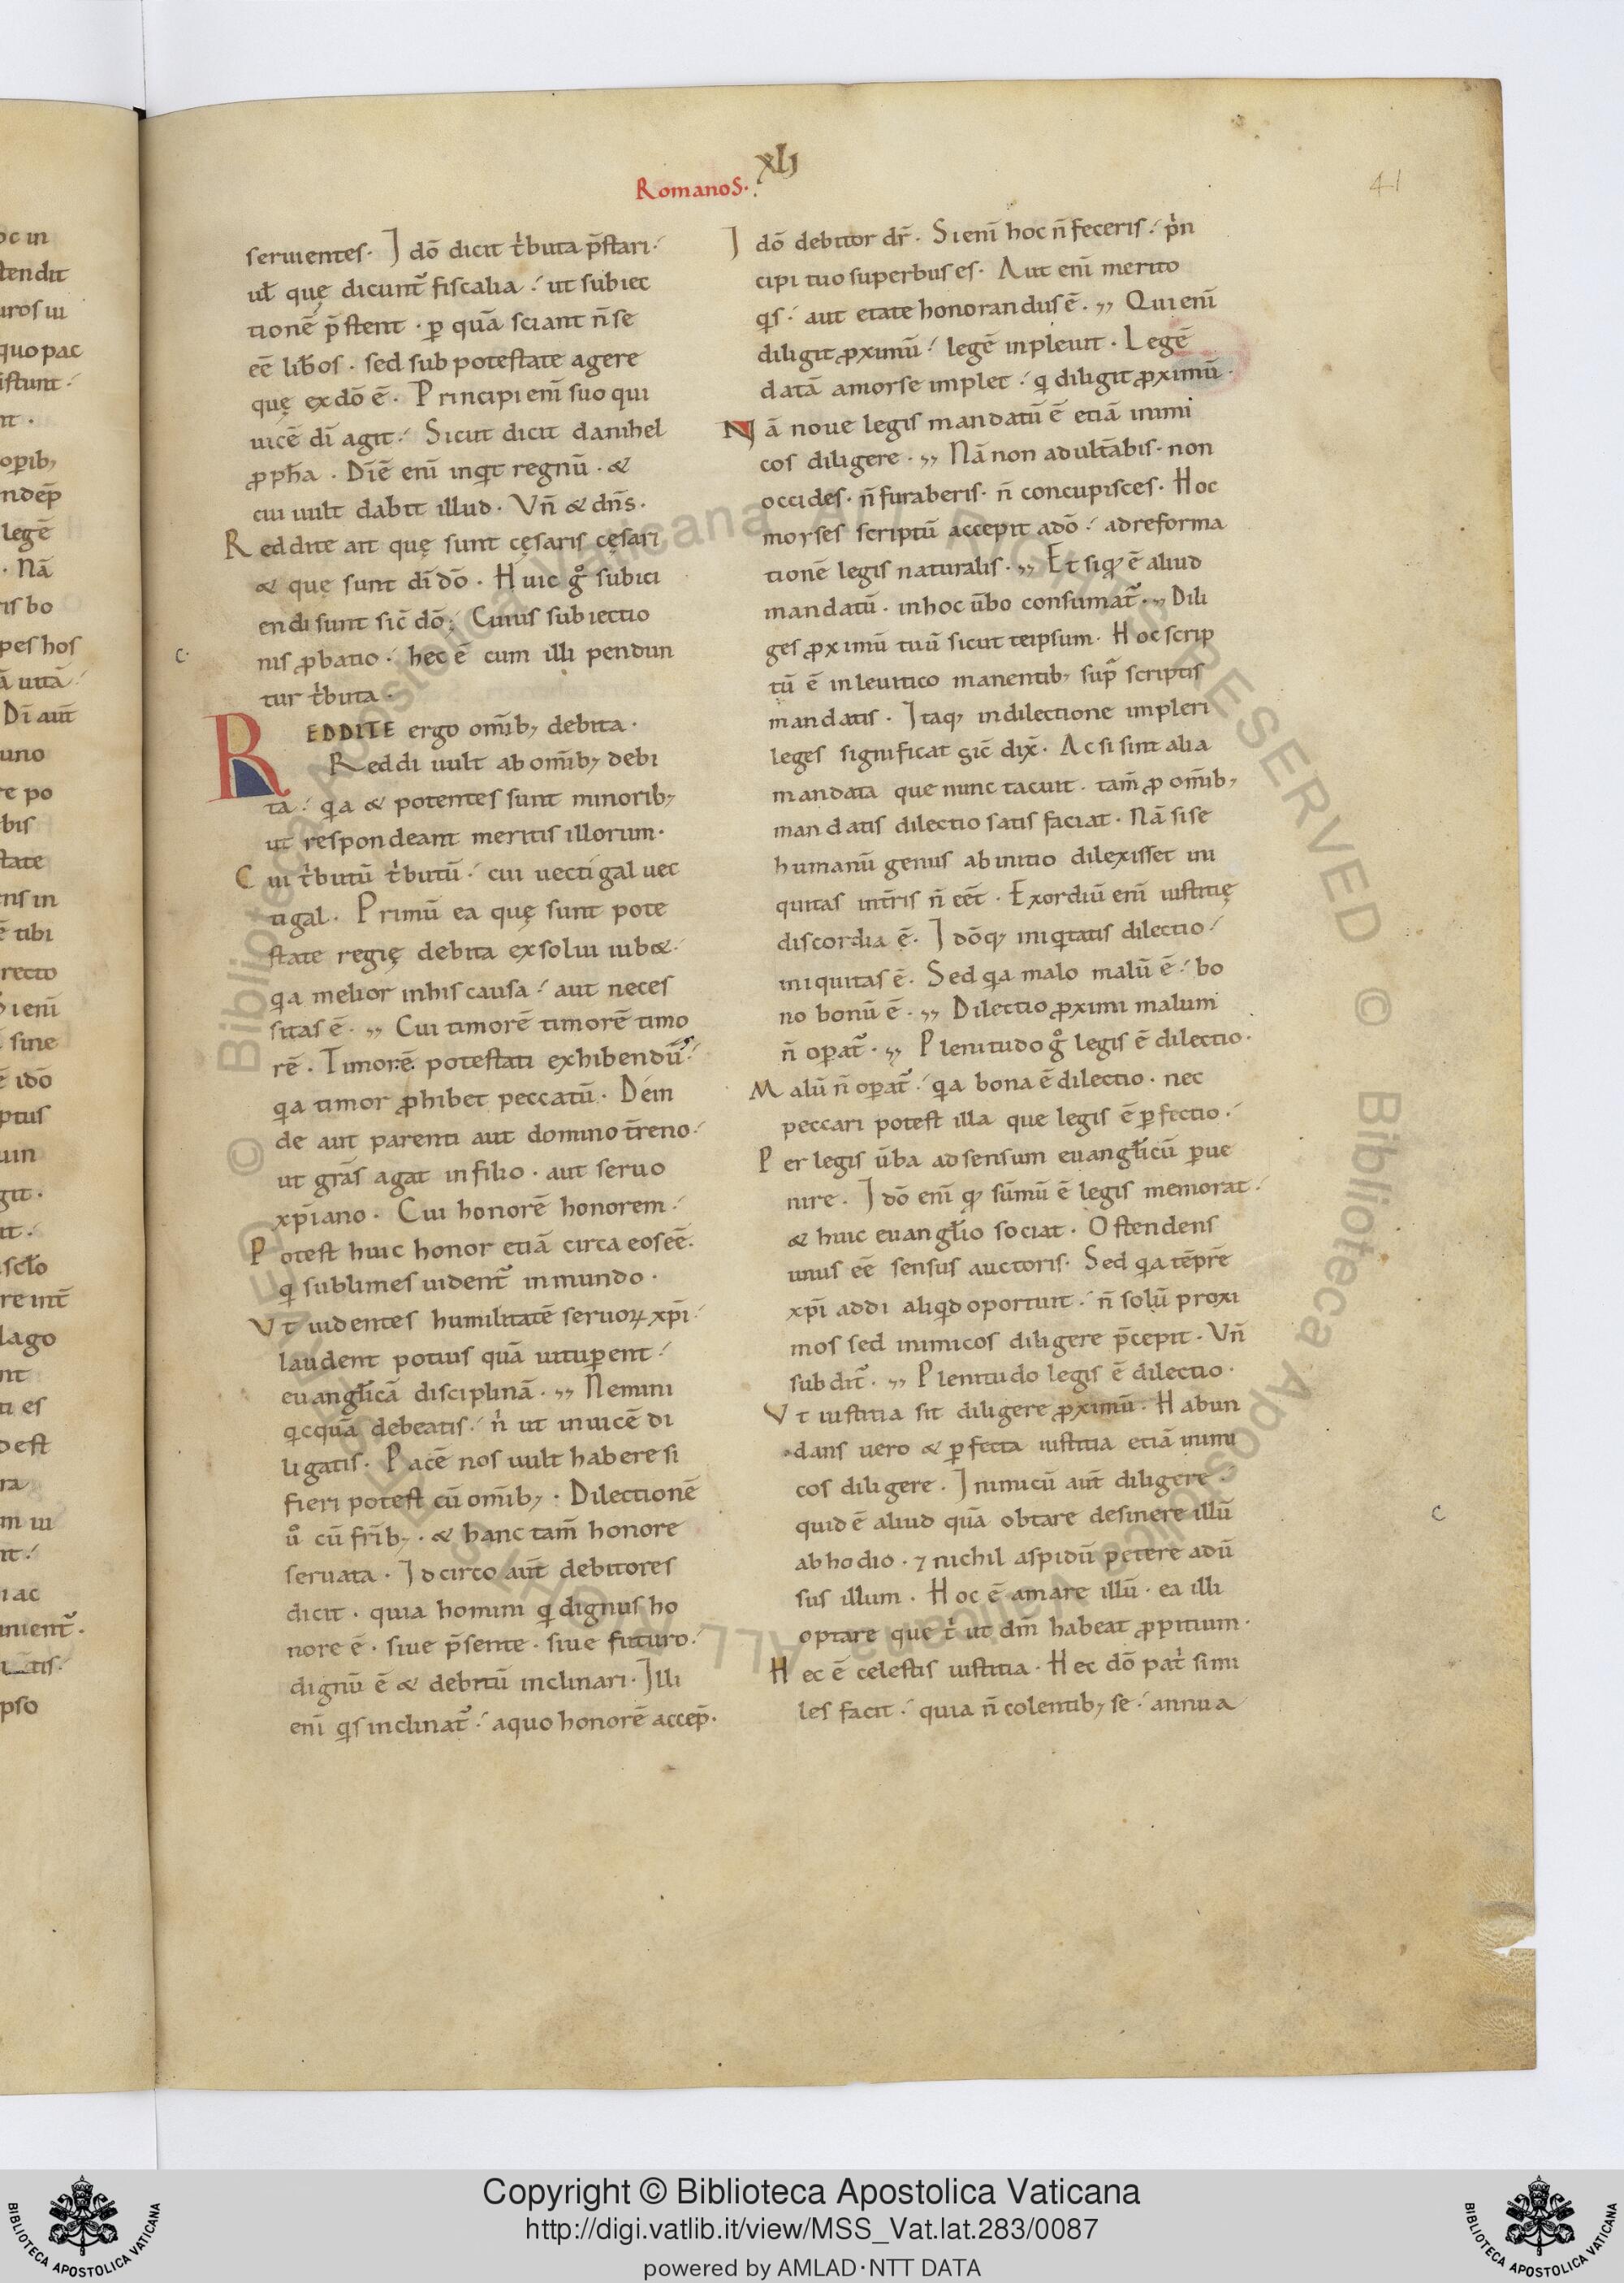 xlj
Romanos.
41
seruientes. Idō dicit tͥbuta p̄stari.
ul̄ quę dicunt᷑ fiscalia. ut subiec
tionē p̄stent. ꝑ quā sciant n̄ se
eē lib̄os. sed sub potestate agere
quę ex dō ē. Principi eni̅ suo qui
uicē dī agit. Sicut dicit danihel
ꝓph̄a. Dīē eni̅ inqͥt regnū. &
cui uult dabit illud. Vn̄ & dn̄s.
Reddite ait quę sunt cęsaris cęsari
& quę sunt dī dō. Huic gͦ subici
endi sunt sic̄ dō; Cuius subiectio
nis ꝓbatio. hec ē cum illi pendun
c.
tur tͥbuta.
REDDITE ergo om̄ib; debita.
Reddi uult ab om̄ib; debi
ta. qͥa & potentes sunt minorib;
ut respondeant meritis illorum.
Cui tͥbutū tͥbutū. cui uectigal uec
tigal. Primū ea quę sunt pote
state regię debita exsolui iub&.
qͥa melior in his causa. aut neces
sitas ē. Cui timorē timorē timo
rē. Timorē potestati exhibendū.
qͥa timor ꝓhibet peccatū. Dein
de aut parenti aut domino t̄reno.
ut grās agat in filio. aut seruo
xp̄iano. Cui honorē honorem.
Potest huic honor etiā circa eos eē.
qͥ sublimes uident᷑ in mundo.
Vt uidentes humilitatē seruoꝝ xp̄i.
laudent potius quā uituꝑent.
euangl̄icā disciplinā. Nemini
qͥcquā debeatis. nͥ ut inuicē di
ligatis. Pacē nos uult habere si
fieri potest cū om̄ib;. Dilectionē
uͦ cū fr̄ib;. & hanc tam̄ honore
seruata. Idcirco aut̄ debitores
dicit. quia homini qͥ dignus ho
nore ē. siue p̄sente. siue futuro.
dignū ē & debitū inclinari. Illi
eni̅ qͥs inclinat᷑. a quo honorē accep̄.
Idō debitor dr̄. Si eni̅ hoc n̄ feceris. pͥn
cipi tuo superbus es. Aut eni̅ merito
qͥs. aut etate honorandus ē. Qui eni̅
diligit ꝓximū. legē inpleuit. Legē
datā a morse implet. qͥ diligit ꝓximū.
Nā noue legis mandatū ē etiā inimi
cos diligere. Nā non adult̄abis. non
occides. n̄ furaberis. n̄ concupisces. Hoc
morses scriptū accepit a dō. ad reforma
tionē legis naturalis. Et si qͩ ē aliud
mandatū. in hoc ūbo consumat᷑. Dili
ges ꝓximū tuū sicut teipsum. Hoc scrip
tū ē in leuitico manentib; sup̄ scriptis
mandatis. Itaq; in dilectione impleri
leges significat sic̄ dix̄. Ac si sint alia
mandata que nunc tacuit. tam̄ ꝓ om̄ib;
mandatis dilectio satis faciat. Nā si se
humanū genus ab initio dilexisset ini
quitas in t̄ris n̄ eēt. Exordiū eni̅ iustitię
discordia ē. Idōq; iniqͥtatis dilectio.
iniquitas ē. Sed qͥa malo malū ē. bo
no bonū ē. Dilectio ꝓximi malum
n̄ oꝑat᷑. Plenitudo gͦ legis ē dilectio.
Malū n̄ oꝑat᷑. qͥa bona ē dilectio. nec
peccari potest illa que legis ē ꝑfectio.
Per legis ūba ad sensum euangl̄icū ꝑue
nire. Idō eni̅ qͩ sūmū ē legis memorat.
& huic euangl̄io sociat. Ostendens
unus eē sensus auctoris. Sed qͥa tēpr̄e
xp̄i addi aliqͥd oportuit. n̄ solū proxi
mos sed inimicos diligere p̄cepit. Vn̄
subdit᷑. Plenitudo legis ē dilectio.
Vt iustitia sit diligere ꝓximū. Habun
dans uero & ꝑfecta iustitia etiā inimi
cos diligere. Inimicū aut̄ diligere
quid ē aliud quā obtare desinere illū
c
ab hodio. ⁊ nichil aspidū petere adū
sus illum. Hoc ē amare illū. ea illi
optare que tͥ ut dm̄ habeat ꝓpitium.
Hec ē celestis iustitia. Hec dō patͥ simi
les facit. quia n̄ colentib; se. annua
Copyright © Biblioteca Apostolica Vaticana
http://digi.vatlib.it/view/MSS_Vat.lat.283/0087
powered by AMLAD·NTT DATA